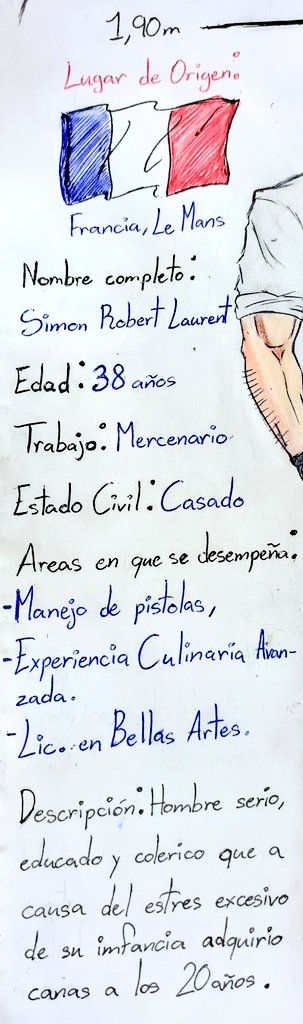 1,90m
Lugar de Origen:
Francia, Le Mans
Nombre completo:
Simon Robert Laurent
Edad: 38 años
Trabajo: Mercenario
Estado Civil: Casado
Areas en que se desempeña:
-Manejo de pistolas,
-Experiencia Culinaria Avan-
zada.
-Lic. en Bellas Artes.
Descripción: Hombre serio,
educado y colerico que a
causa del estres excesivo
de su imfancia adquirio
canas a los 20 años.